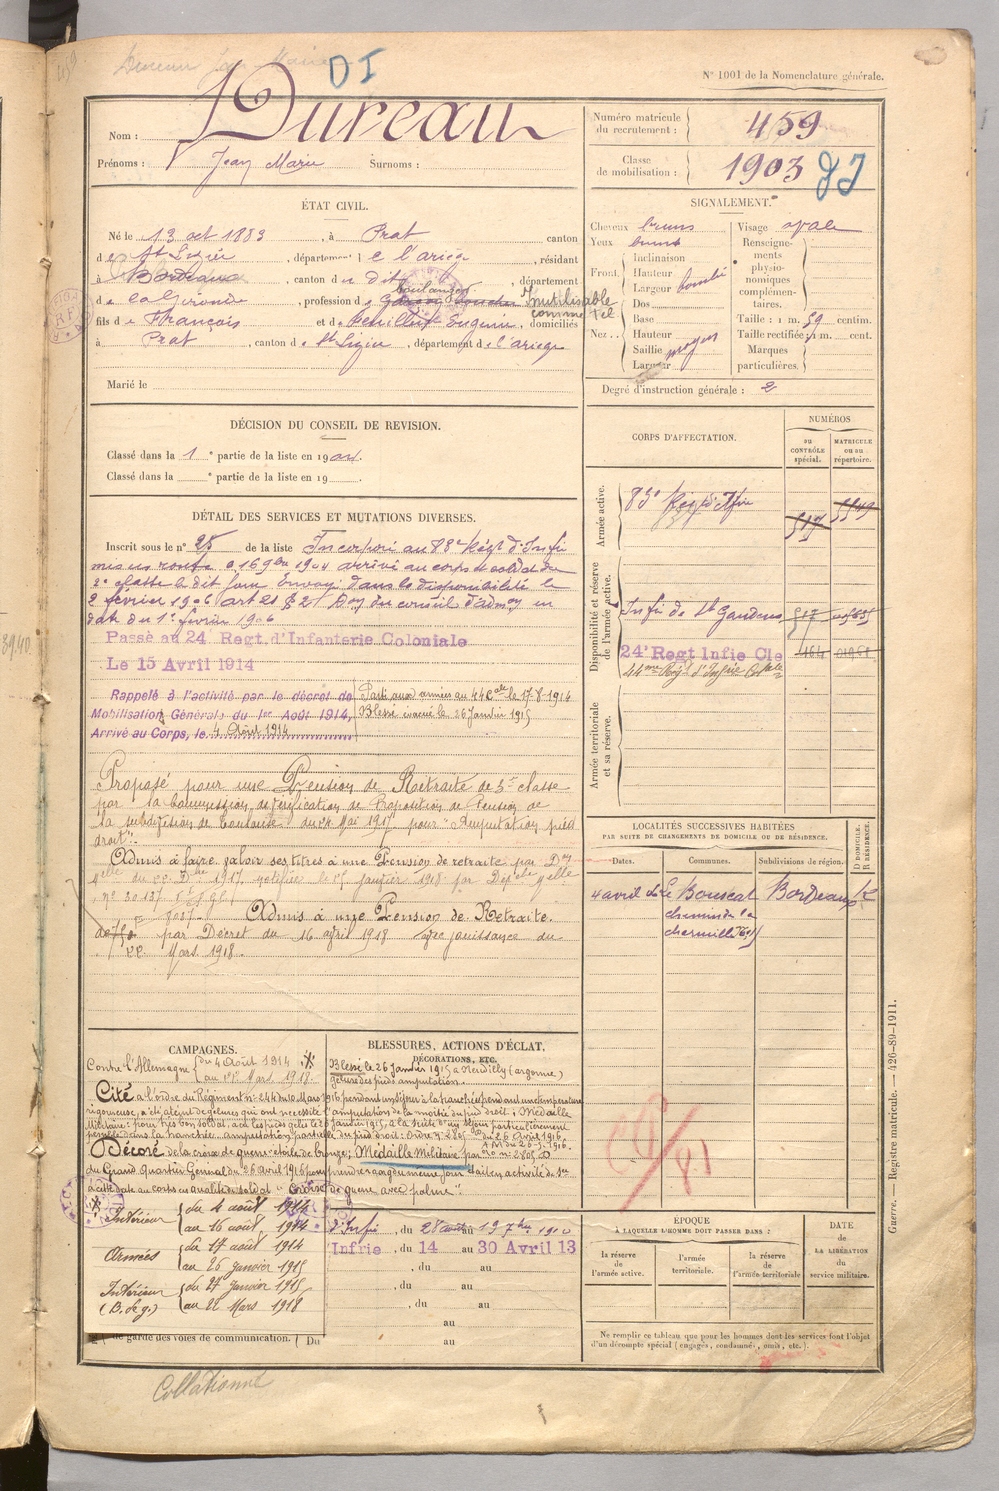 DI
N° 1001 de la Nomenclature générale.
Nom : Dureau
Prénoms : Jean Marie Surnoms :
Numéro matricule du recrutement : 459
Classe de mobilisation : 1903
ÉTAT CIVIL.
Né le 13 oct 1883, à Prat canton
de St Lizier, département de l'ariège, résidant
à Bordeaux, canton du dit, département
de la Gironde, profession de Garçon boucher boulanger Inutilisable comme tel
fils de François et de Eugénie, domiciliés
à Prat, canton de St Lizier, département de l'ariège
Marié le
SIGNALEMENT.
Cheveux bruns
Yeux bruns
Front. Inclinaison
Hauteur
Largeur bombé
Nez. Dos
Base
Hauteur
Saillie moyen
Largeur
Visage ovale
Renseignements physionomiques complémentaires.
Taille : 1 m. 59 centim.
Taille rectifiée : 1 m. cent.
Marques particulières.
Degré d'instruction générale : 2
DÉCISION DU CONSEIL DE REVISION.
Classé dans la 1e partie de la liste en 1904.
Classé dans la e partie de la liste en 19
DÉTAIL DES SERVICES ET MUTATIONS DIVERSES.
Inscrit sous le n° 25 de la liste Incorporé au 83e Régt d'Infie
mis en route le 16 9bre 1904 arrivé au corps et soldat de
2e classe le dit jour. Envoyé dans la disponibilité le
2 février 1906 art 21 § 21 Don du conseil d'admon en
date du 1er février 1906
Passé au 24 Regt. d'Infanterie Coloniale
Le 15 Avril 1914
Rappelé à l'activité par le décret de
Mobilisation Générale du 1er Août 1914,
Arrivé au Corps, le 4 Août 1914
Parti aux armées au 44e Cal le 17-8-1914
Blessé évacué le 26 Janvier 1915
Proposé pour une Pension de Retraite de 5e classe
par la Commission de vérification de Proposition de Pension de
la subdivision de Toulouse du 4 Mai 1917 pour "Amputation pied
droit".
Admis à faire valoir ses titres à une Pension de retraite par Don
Admis à une Pension de Retraite
de 750 par Décret du 16 avril 1918 avec jouissance du
Mars 1918.
CORPS D'AFFECTATION.
NUMÉROS
au CONTRÔLE spécial.
MATRICULE ou au répertoire.
Armée active.
83e Régt d'Infie
Disponibilité et réserve de l'armée active.
Infie de St Gaudens
24e Regt Infie Cle
44me Rég d'Infie Cle
Armée territoriale et sa réserve.
LOCALITÉS SUCCESSIVES HABITÉES
PAR SUITE DE CHANGEMENTS DE DOMICILE OU DE RÉSIDENCE.
Dates. Communes. Subdivisions de région. D DOMICILE. R RÉSIDENCE.
4 avril Le Bouscat Bordeaux
chemin de la
CAMPAGNES.
Contre l'Allemagne du 4 Août 1914
au Mars 1918.
BLESSURES, ACTIONS D'ÉCLAT, DÉCORATIONS, ETC.
Blessé le 26 Janvier 1915 à Neufilly (argonne)
gelure des pieds amputation.
Cité à l'ordre du Régiment n° 244 du 10 Mars 1916 pendant un séjour à la tranchée pendant une température
rigoureuse, a été atteint de gelures qui ont nécessité l'amputation de la moitié du pied droit ; Médaille
Militaire : pour très bon soldat, a eu les pieds gelés le 26 janvier 1915, à la suite d'un séjour particulièrement
pénible dans la tranchée. amputation partielle du pied droit.
Décoré de la croix de guerre étoile de bronze ; Médaille Militaire par
du Grand Quartier Général du 26 avril 1916 pour prendre rang du même jour
à cité date au corps en qualité de soldat "Croix de guerre avec palme".
Intérieur du 4 août 1914
au 16 août 1914
Armées du 17 août 1914
au 26 janvier 1915
Intérieur (B. de g.) du 27 Janvier 1915
au 22 Mars 1918
d'Infie, du 28 août au 19 7bre 1910
Infrie, du 14 au 30 Avril 13
, du au
, du au
, du au
au
de garde des voies de communication. Du au
EPOQUE
À LAQUELLE L'HOMME DOIT PASSER DANS :
la réserve de l'armée active.
l'armée territoriale.
la réserve de l'armée territoriale
DATE DE LA LIBÉRATION du service militaire.
Ne remplir ce tableau que pour les hommes dont les services font l'objet
d'un décompte spécial (engagés, condamnés, omis, etc.).
Guerre. — Registre matricule. — 426-89-1911.
Collationné